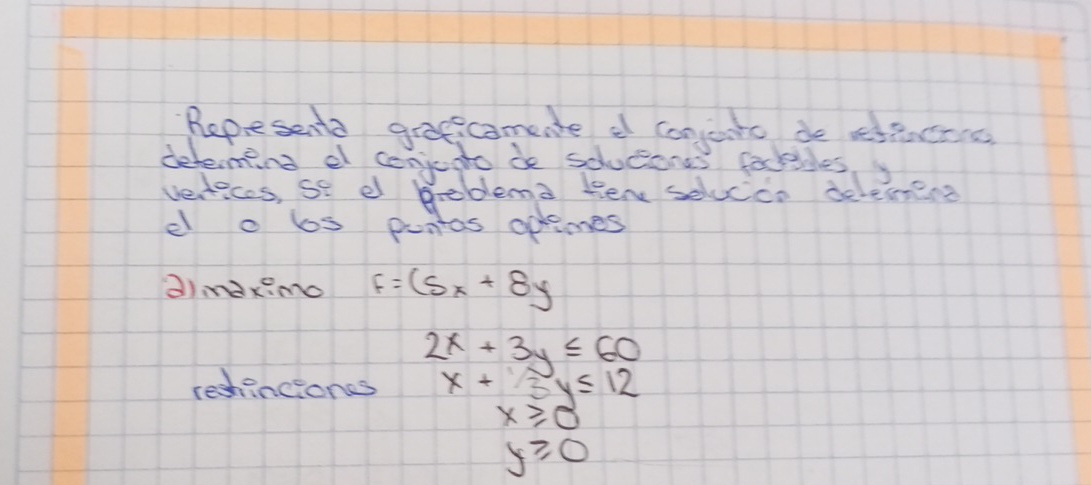 Representa graficamente el conjunto de restincciones
determina el conjunto de soluciones factibles y
vertices, si el problema tiene solución determina
el o los puntos optimos
a) maximo F=(5x + 8y
2x + 3y ≤ 60
restinciones x + 1/3 y ≤ 12
x ≥ 0
y ≥ 0